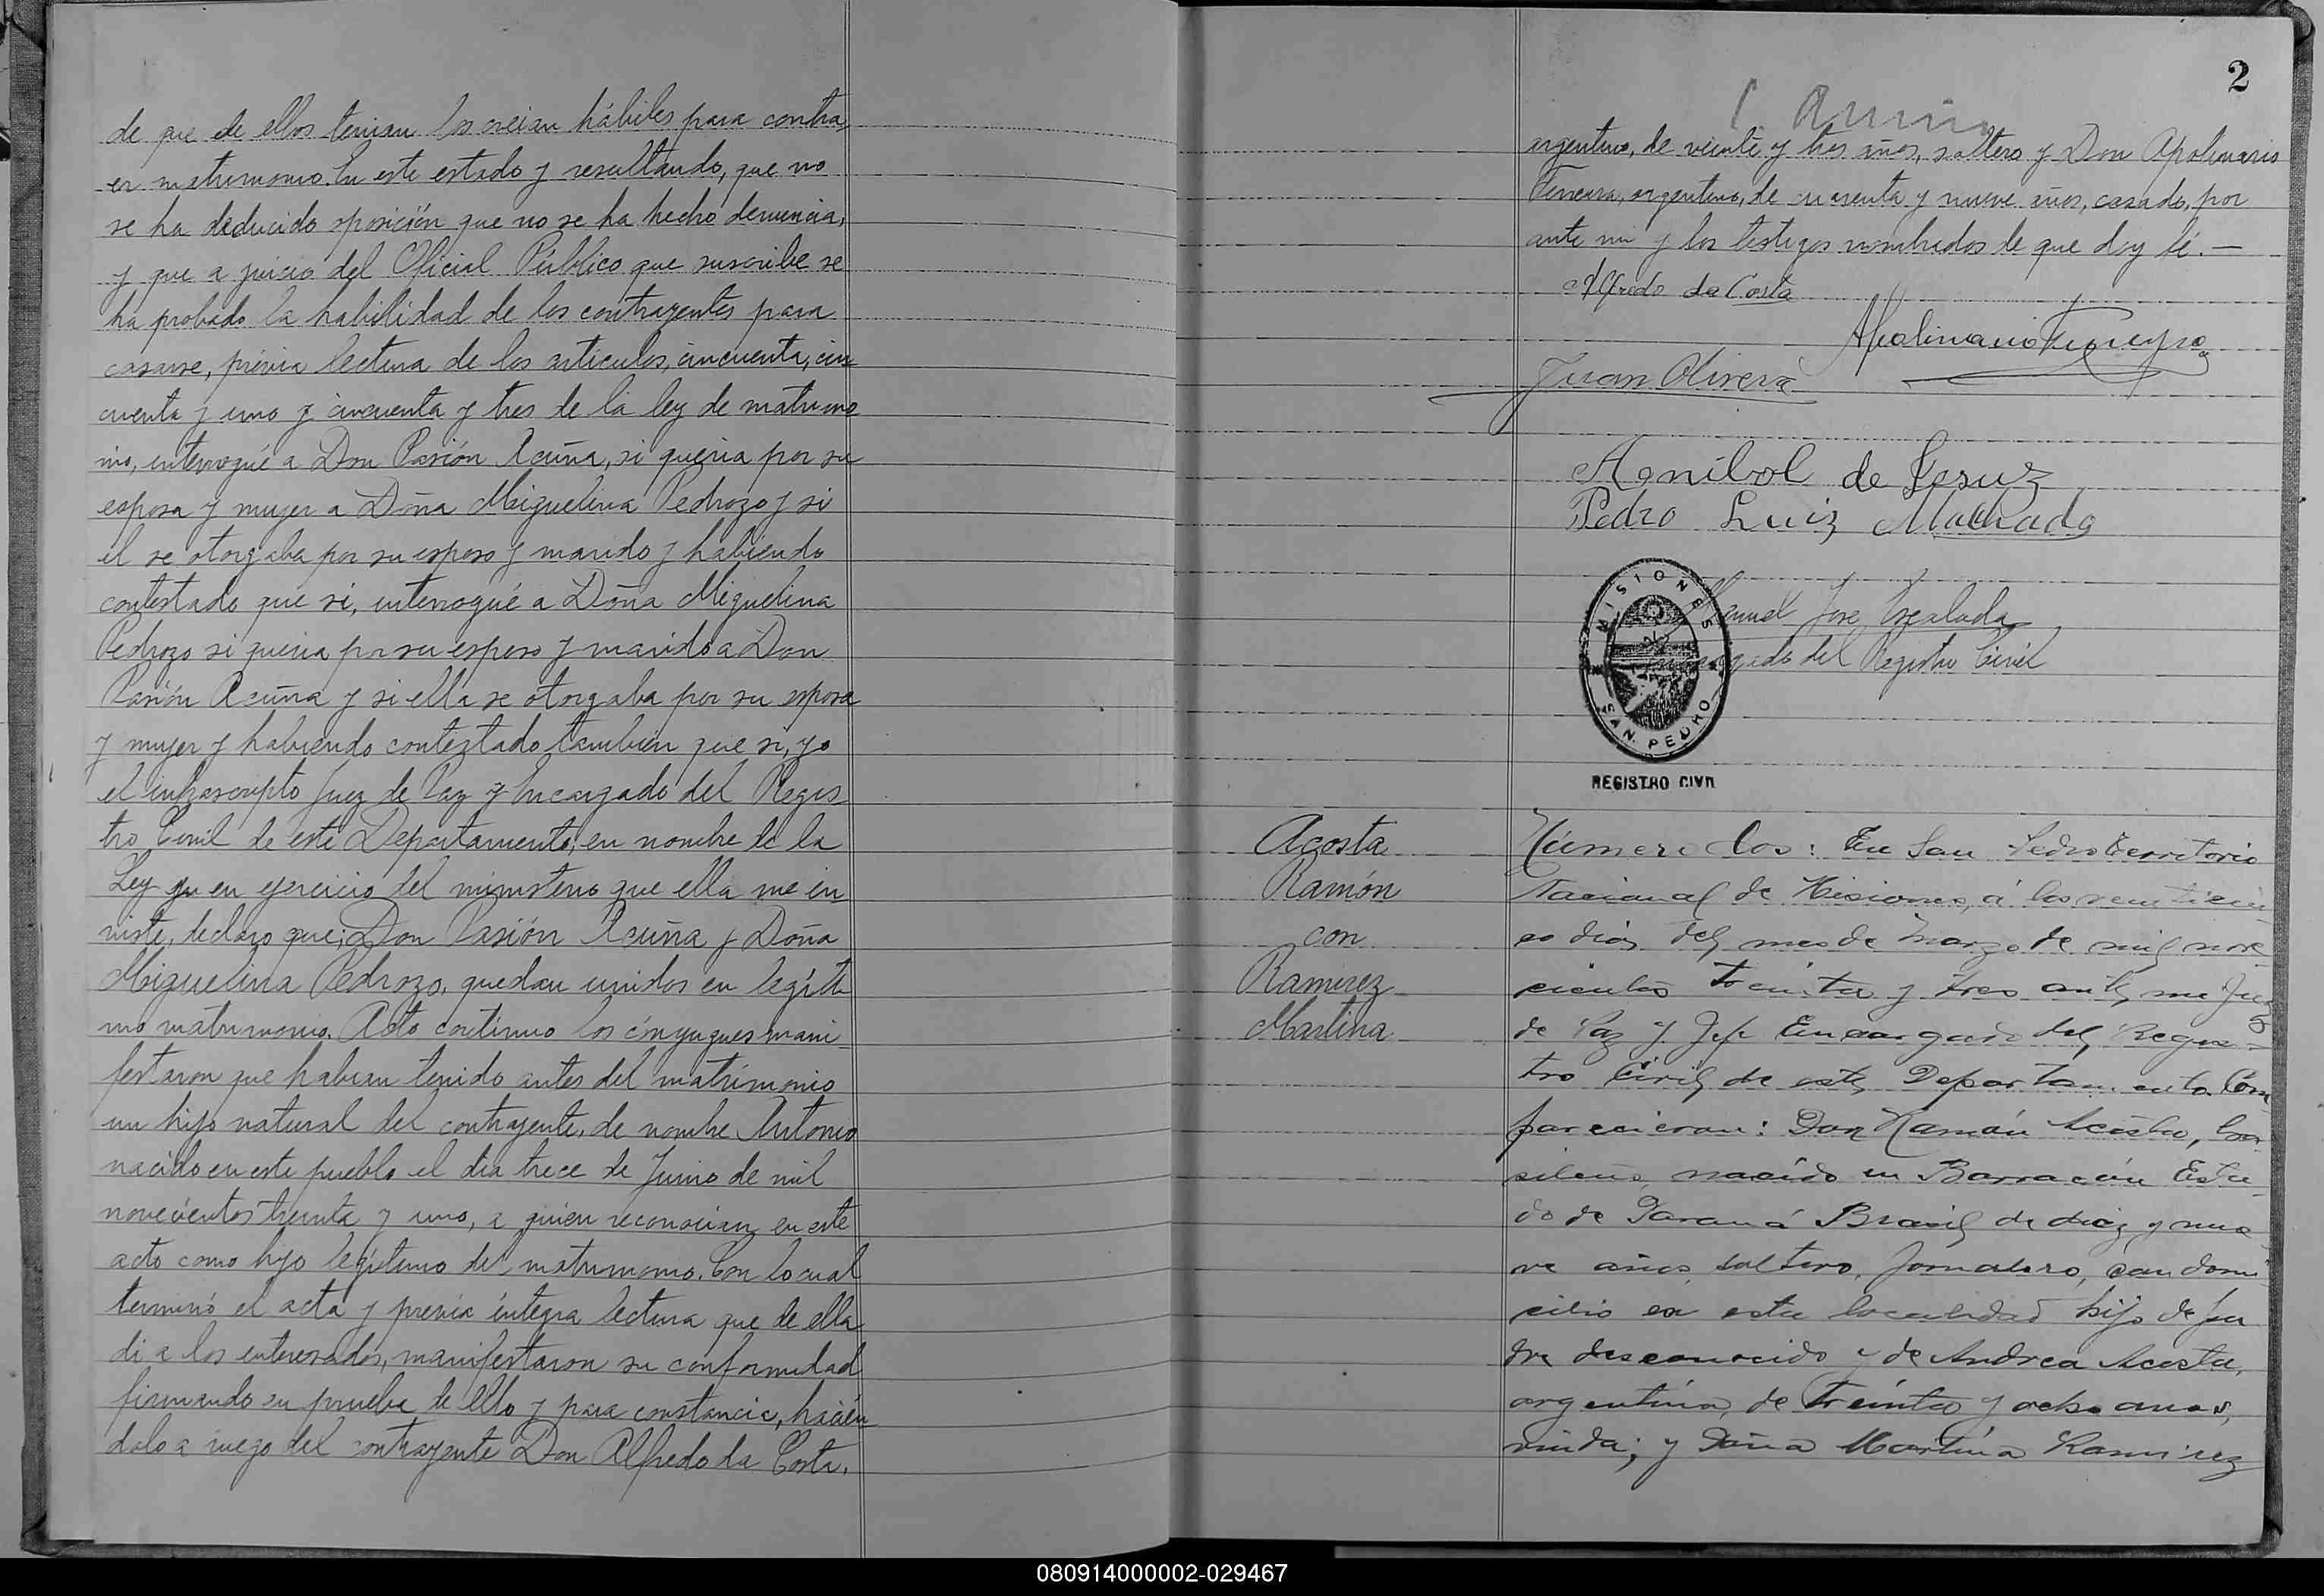 de que de ellos tenian los creian hábiles para contra,
er matrimonio. En este estado y resultando, que no
se ha deducido oposición que no se ha hecho denuncia,
y que a juicio del Oficial Público que suscribe se
ha probado la habilidad de los contrayentes para
casarse, prévia lectura de los articulos, cincuenta, cin
cuenta y uno y cincuenta y tres de la ley de matrimo
nio, interrogué a Don Pasión Acuña, si queria por su
esposa y mujer a Doña Miguelina Pedrozo y si
el se otorgaba por su esposo y marido y habiendo
contestado que si, interrogué a Doña Miguelina
Pedrozo si queria por su esposo y marido a Don
Pasión Acuña y si ella se otorgaba por su esposa
y mujer y habiendo contestado tambien que si, yo
el infrascripto Juez de Paz y Encargado del Regis
tro Civil de este Departamento, en nombre de la
Ley y en ejercicio del ministerio que ella me in
viste, declaro que; Don Pasión Acuña y Doña
Miguelina Pedrozo, quedan unidos en legíti
mo matrimonio. Acto contínuo los cónyugues mani
festaron que habian tenido antes del matrimonio
un hijo natural del contrayente, de nombre Antonio
nacido en este pueblo el dia trece de Junio de mil
novecientos treinta y uno, a quien reconocian en este
acto como hijo legítimo del matrimonio. Con lo cual
terminó el acta y previa íntegra lectura que de ella
di a los interesados, manifestaron su conformidad
firmando en prueba de ello y para constancia, hacien
dolo a ruego del contrayente Don Alfredo da Costa,
2
argentino, de veinte y tres años, soltero y Don Apolinario
Ferreira, argentino, de cuarenta y nueve años, casado, por
ante mi y los testigos nombrados de que doy fé.—
Alfredo da Costa
Juan Olivera
Pedro Luiz Machado
Manuel José
Encargado del Registro Civil
MISIONES
SAN PEDRO
REGISTRO CIVIL
Acosta
Ramón
con
Ramirez
Martina
Número dos: En San Pedro Territorio
Nacional de Misiones, á los veinticin
co dias del mes de Marzo de mil nove
cientos treinta y tres ante, mi Juez
de Paz y Jefe Encargado del, Regis-
tro Civil, de este, Departamento. Com
parecieron: Don Ramón Acosta, bra
sileño, nacido en Barracón Esta
do de Paraná Brasil de diez y nue
ve años, soltero, Jornalero, con domi
cilio en esta localidad hijo de pa
dre desconocido y de Andrea Acosta,
argentina, de treinta y ocho anos,
viuda; y Doña Martina Ramirez
080914000002-029467